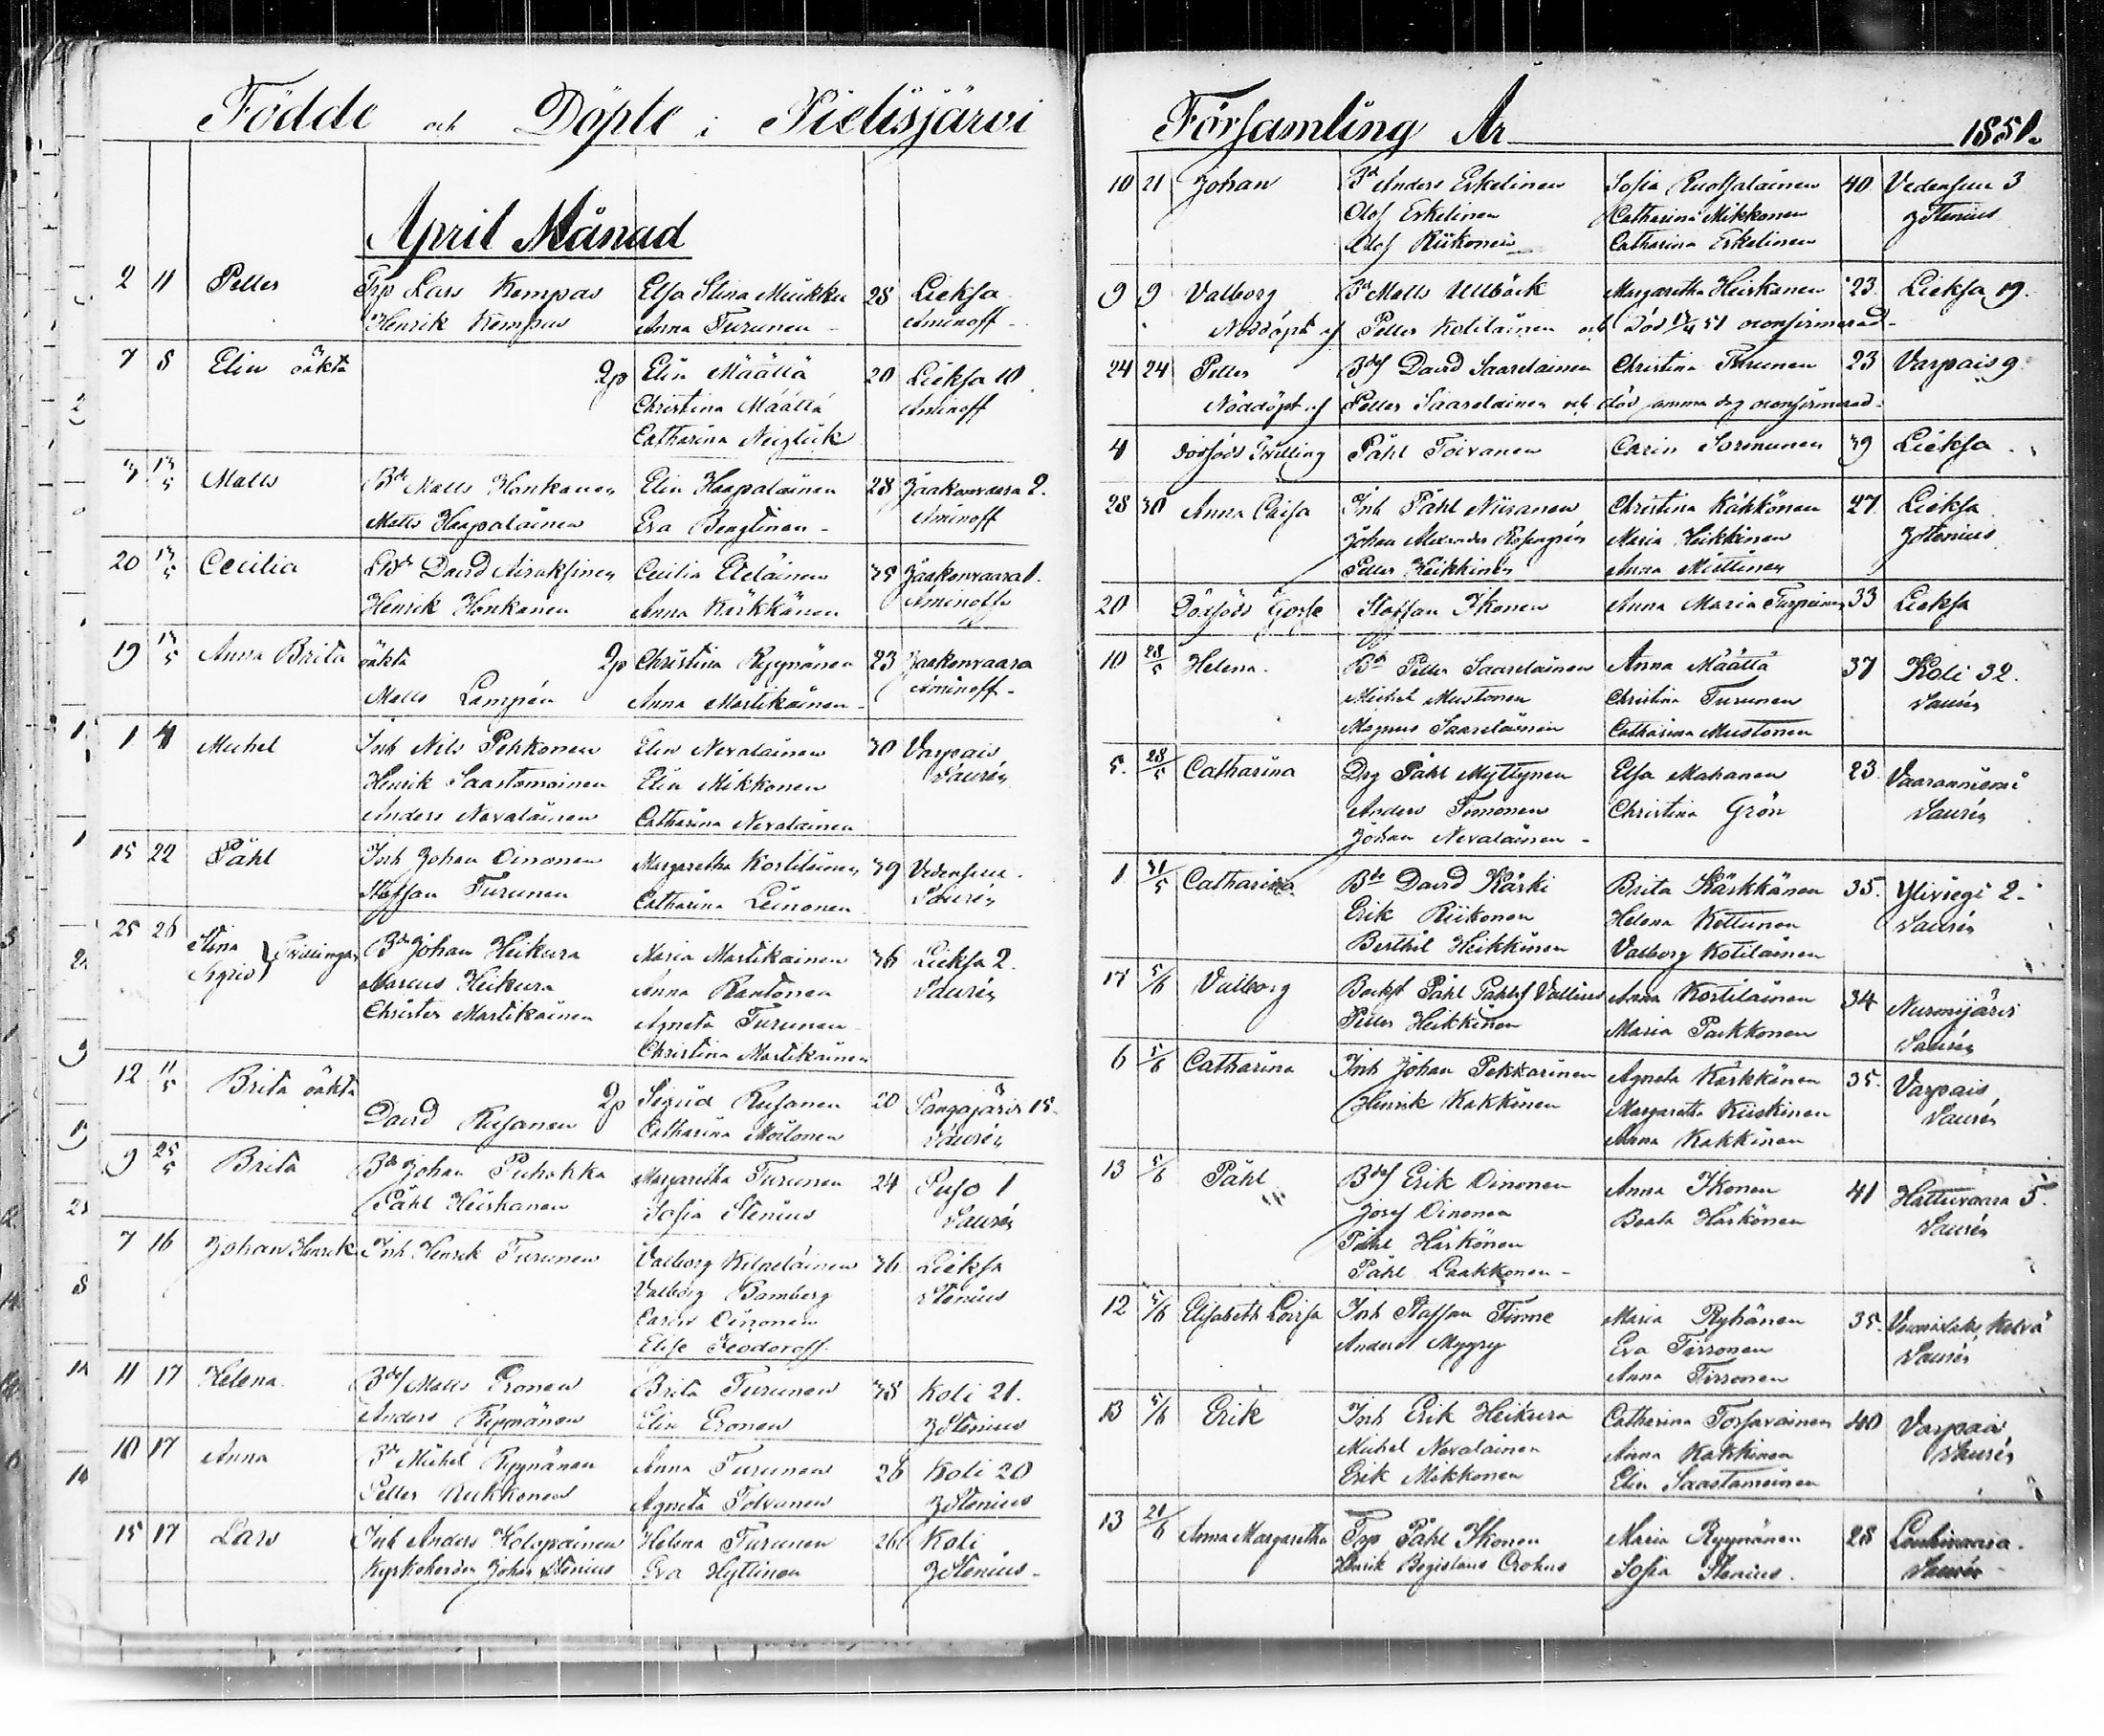 Födde och Döpte i Pielisjärvi
April Månad
2 11 Petter Trp Lars Kempas Elsa Stina Mükku 28 Lieksa
Henrik Kempas Anna Turunen Aminoff
7 8 Elin oäkta Qp Elin Määttä 20 Lieksa 10
Christina Määttä Aminoff
Catharina Neiglick
3 13/5 Matts Bde Matts Honkanen Elin Haapalainen 28 Jaakonvaara 2.
Matts Haapalainen Eva Bengtinen Aminoff
20 13/5 Cecilia David Airaksinen Cecilia Eteläinen 35 Jaakonvaara 1.
Henrik Honkanen Anna Kärkkänen Aminoff
19 13/5 Anna Brita oäkta Qp Christina Ryynänen 23 Jaakonvaara
Matts Lampén Anna Martikainen Aminoff
1 4 Michel Inh Nils Pehkonen Elin Nevalainen 30 Varpais
Henrik Saastamoinen Elin Mikkonen Saurén
Anders Nevalainen Catharina Nevalainen
15 22 Påhl Inh Johan Oinonen Margaretha Kortilainen 39 Vedensuu
Staffan Turunen Catharina Leinonen Saurén
25 26 Stina Sigrid Tvillingar Bde Johan Heikura Maria Martikainen 36 Lieksa 2.
Marcus Heikura Anna Rantonen Saurén
Christer Martikainen Agneta Turunen
Christina Martikainen
12 11/5 Brita oäkta Qp Sigrid Rusanen 20 Pangajärvi 15
David Rusanen Catharina Moilanen Saurén
9 25/5 Brita Bde Johan Puhakka Margaretha Turunen 24 Puso 1
Påhl Heiskanen Sofia Stenius Saurén
7 16 Johan Henrik Inh Henrik Turunen Valborg Kilpeläinen 36 Lieksa
Valborg Bamberg Stenius
Carin Oinonen
Elise Feodoroff
11 17 Helena Bdes Matts Eronen Brita Turunen 38 Koli 21.
Anders Ryynänen Elin Eronen J Stenius
10 17 Anna Bde Michel Ryynänen Anna Turunen 26 Koli 20
Petter Kukkonen Agneta Tolvanen J Stenius
15 17 Lars Inh Anders Holopainen Helena Turunen 26 Koli
Kyrkoherden Johan Stenius Eva Hyttinen J Stenius
Församling År 1851.
10 21 Johan Bde Anders Eskelinen Sofia Ruotsalainen 40 Vedensuu 3
Olof Eskelinen Catharina Mikkonen J Stenius
Olof Riikonen Catharina Eskelinen
9 9 Valborg Bde Matts Ullbäck Margaretha Heiskanen 23. Lieksa 19.
Nöddöpt af Petter Kotilainen och död 51 okonfirmerad
24 24 Petter Bdes David Saarelainen Christina Turunen 23 Varpais 9
Nöddöpt af Petter Saarelainen och död samma dag okonfirmerad
4 dödfödd Tvilling Påhl Toivanen Carin Sormunen 39 Lieksa
28 30 Anna Caisa Inh Påhl Niiranen Christina Käkkönen 27 Lieksa
Johan Alexander Maria Heikkinen J Stenius
Petter Heikkinen Anna Miettinen
20 Dödfödd Gosse Staffan Ikonen Anna Maria Turpeinen 33 Lieksa
10 28/5 Helena Bde Petter Saarelainen Anna Määttä 37 Koli 32.
Michel Mustonen Christina Turunen Saurén
Magnus Saarelainen Catharina Mustonen
5. 28/5 Catharina Drg Påhl Myttynen Elsa Mahanen 23 Vaaranniemi
Anders Timonen Christina Grön Saurén
Johan Nevalainen
1 31/5 Catharina Bde David Kärki Brita Kärkkänen 35. Yliviegi 2.
Erik Riikonen Helena Kettunen Saurén
Berthil Heikkinen Valborg Kotilainen
17 5/6 Valborg Backst Påhl Påhlsf Vallius Anna Kortilainen 34 Nurmijärvi
Petter Heikkinen Maria Parkkonen Saurén
6 5/6 Catharina Inh Johan Pekkarinen Agneta Kärkkänen 35. Varpais
Henrik Kakkinen Margaretha Kiiskinen Saurén
Anna Kakkinen
13 5/6 Påhl Bdes Erik Oinonen Anna Ikonen 41 Hattuvaara 5
Josef Oinonen Beata Härkönen Saurén
Påhl Härkönen
Påhl Laakkonen
12 5/6 Elisabeth Lovisa Inh Staffan Timme Maria Ryhänen 35 Kelvä
Anders Myyry Eva Tirronen Saurén
Anna Tirronen
13 5/6 Erik Inh Erik Heikura Catharina Torsavainen 40 Varpais
Michel Nevalainen Anna Kakkinen Saurén
Erik Mikkonen Elin Saastamoinen
13 21/6 Anna Margaretha Trp Påhl Ikonen Maria Ryynänen 28 Louhivaara
Henrik Bogislaus Crohns Sofia Stenius Saurén